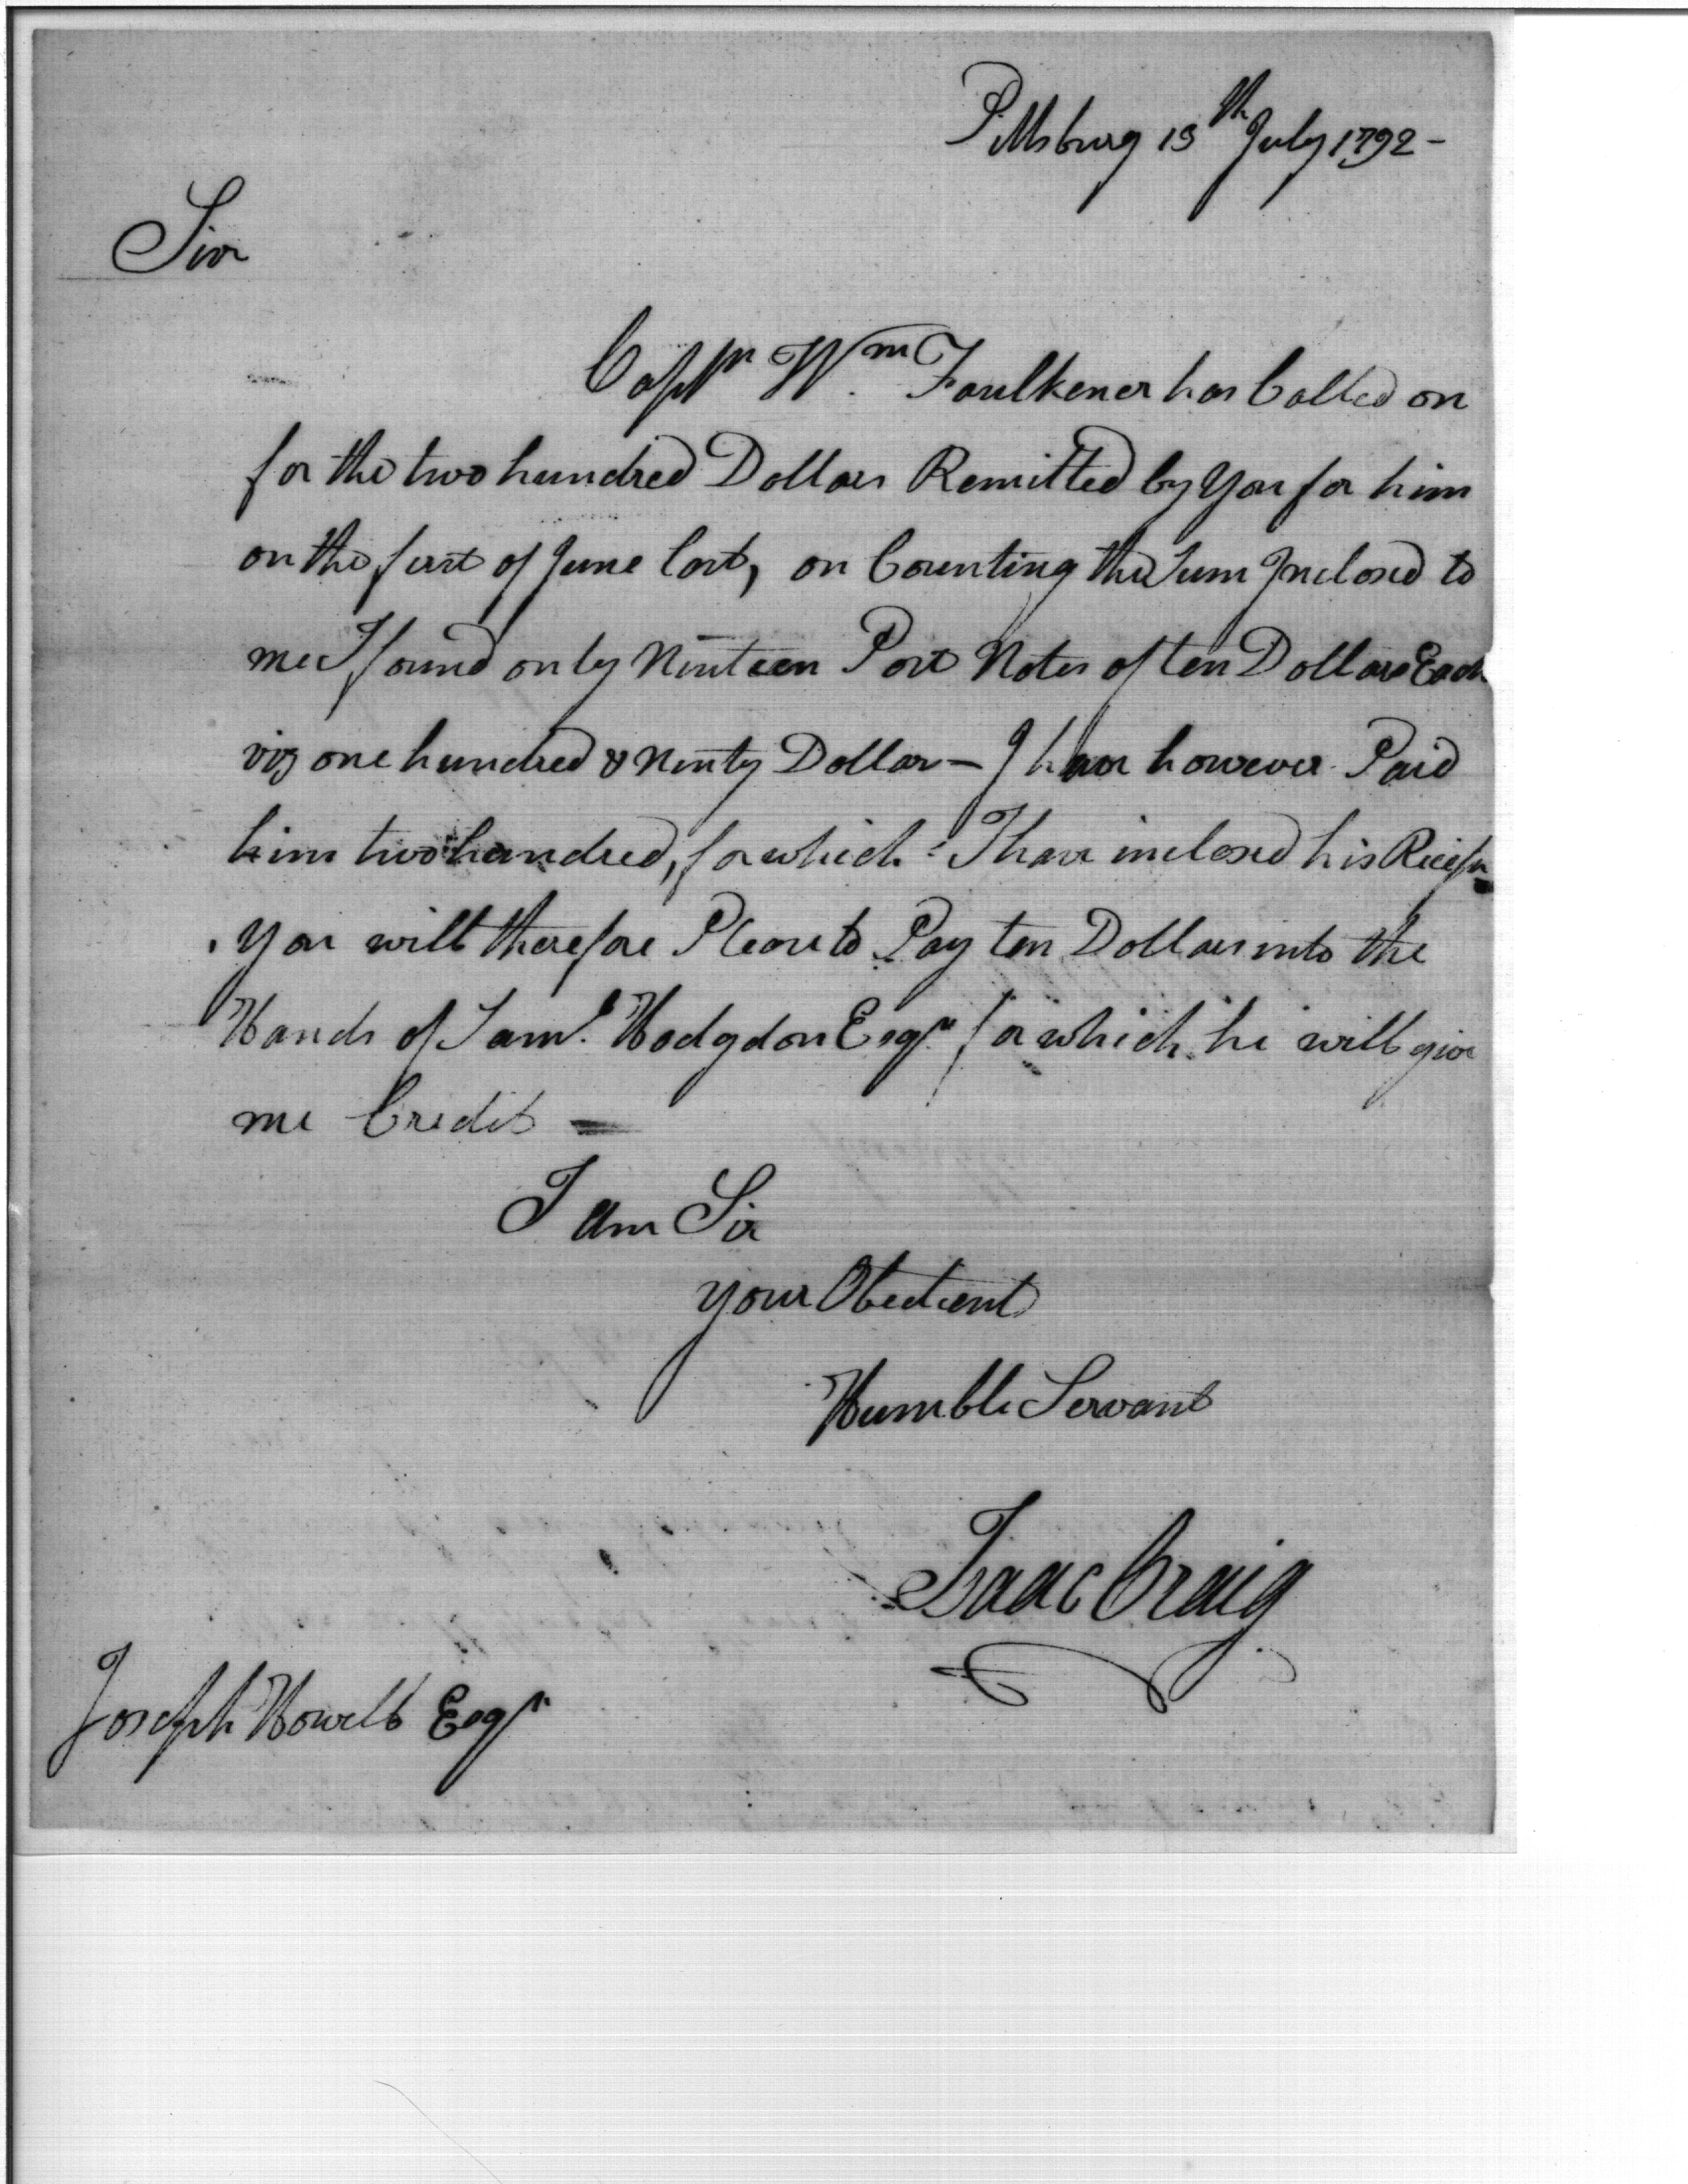 Pittsburg 13th July 1792 -
Sir
Captn Wm. Faulkener has Called on
for the two hundred Dollars Remitted by You for him
on the first of June last, on Counting the Sum Inclosed to
me I found only Ninteen Post Notes of ten Dollars Each
viz one hundred & Ninty Dollars - I have however Paid
him two hundred, for which I have inclosed his
You will therefore Please to Pay ten Dollars into the
Hands of Saml. Hodgdon Esqr for which he will give
me Credit -
I am Sir
your Obedient
Humble Servant
Isaac Craig
Joseph Howell Esqr